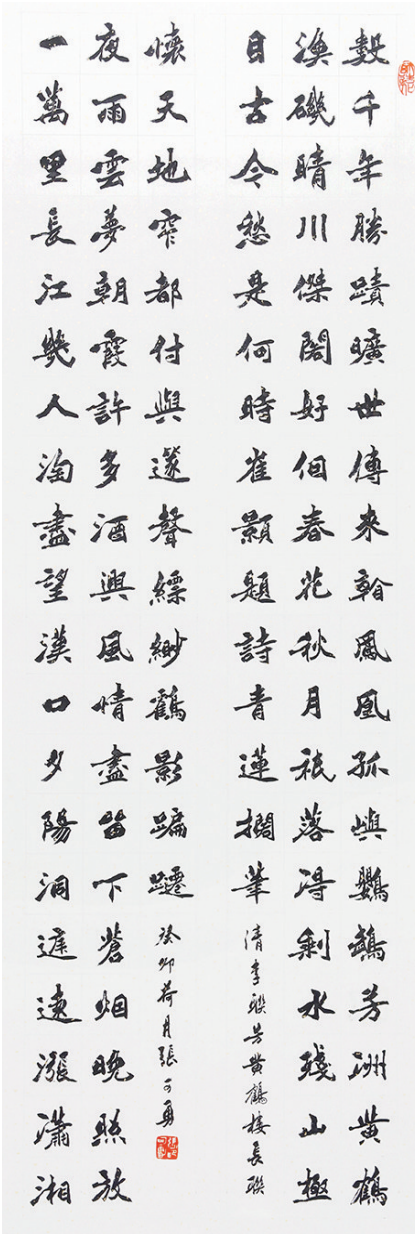 數千年勝蹟曠世傳來看鳳凰孤嶼鸚鵡芳洲黄鶴
漁磯晴川傑閣好個春花秋月衹落得剩水殘山極
目古今愁是何時崔顥題詩青蓮擱筆
清李聯芳黄鶴樓長聯
一萬里長江幾人淘盡望漢口夕陽洞庭遠漲瀟湘
夜雨雲夢朝霞許多酒興風情盡留下蒼烟晚照放
懷天地窄都付與篴聲縹緲鶴影蹁躚
癸卯荷月張可勇